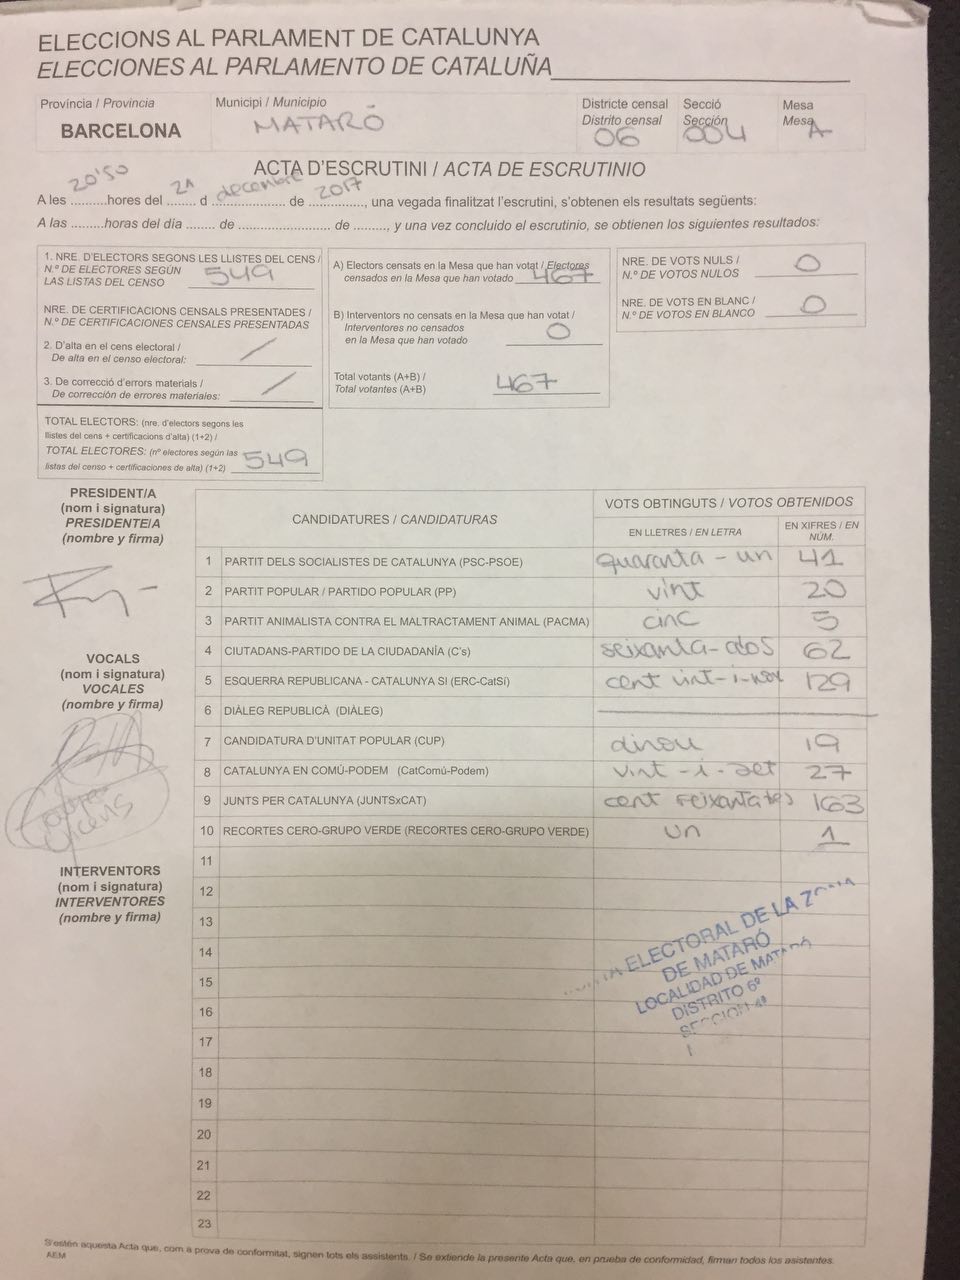 ELECCIONS AL PARLAMENT DE CATALUNYA
ELECCIONES AL PARLAMENTO DE CATALUÑA
Província / Provincia
BARCELONA
Municipi / Municipio
MATARÓ
Districte censal
Distrito censal
06
Secció
Sección
004
Mesa
Mesa
A
ACTA D'ESCRUTINI / ACTA DE ESCRUTINIO
A les 20'50 hores del 21 d decembre de 2017, una vegada finalitzat l'escrutini, s'obtenen els resultats següents:
A las .........horas del día ........ de .......................... de ........., y una vez concluido el escrutinio, se obtienen los siguientes resultados:
1. NRE. D'ELECTORS SEGONS LES LLISTES DEL CENS /
N.º DE ELECTORES SEGÚN
LAS LISTAS DEL CENSO
549
NRE. DE CERTIFICACIONS CENSALS PRESENTADES /
N.º DE CERTIFICACIONES CENSALES PRESENTADAS
2. D'alta en el cens electoral /
De alta en el censo electoral: /
3. De correcció d'errors materials /
De corrección de errores materiales: /
TOTAL ELECTORS: (nre. d'electors segons les
llistes del cens + certificacions d'alta) (1+2) /
TOTAL ELECTORES: (nº electores según las
listas del censo + certificaciones de alta) (1+2)
549
A) Electors censats en la Mesa que han votat / Electores
censados en la Mesa que han votado 467
B) Interventors no censats en la Mesa que han votat /
Interventores no censados
en la Mesa que han votado
0
Total votants (A+B) /
Total votantes (A+B)
467
NRE. DE VOTS NULS /
N.º DE VOTOS NULOS
0
NRE. DE VOTS EN BLANC /
N.º DE VOTOS EN BLANCO
0
PRESIDENT/A
(nom i signatura)
PRESIDENTE/A
(nombre y firma)
VOCALS
(nom i signatura)
VOCALES
(nombre y firma)
INTERVENTORS
(nom i signatura)
INTERVENTORES
(nombre y firma)
CANDIDATURES / CANDIDATURAS
VOTS OBTINGUTS / VOTOS OBTENIDOS
EN LLETRES / EN LETRA
EN XIFRES / EN
NÚM.
1 PARTIT DELS SOCIALISTES DE CATALUNYA (PSC-PSOE) quaranta-un 41
2 PARTIT POPULAR / PARTIDO POPULAR (PP) vint 20
3 PARTIT ANIMALISTA CONTRA EL MALTRACTAMENT ANIMAL (PACMA) cinc 5
4 CIUTADANS-PARTIDO DE LA CIUDADANÍA (C's) seixanta-dos 62
5 ESQUERRA REPUBLICANA - CATALUNYA SI (ERC-CatSí) cent vint-i-nou 129
6 DIÀLEG REPUBLICÀ (DIÀLEG)
7 CANDIDATURA D'UNITAT POPULAR (CUP) dinou 19
8 CATALUNYA EN COMÚ-PODEM (CatComú-Podem) vint-i-set 27
9 JUNTS PER CATALUNYA (JUNTSxCAT) cent seixanta tres 163
10 RECORTES CERO-GRUPO VERDE (RECORTES CERO-GRUPO VERDE) un 1
11
12
13
14
15
16
17
18
19
20
21
22
23
ELECTORAL DE LA
DE MATARÓ
LOCALIDAD DE MATARÓ
DISTRITO 6º
SECCION 4ª
S'estén aquesta Acta que, com a prova de conformitat, signen tots els assistents. / Se extiende la presente Acta que, en prueba de conformidad, firman todos los asistentes.
AEM